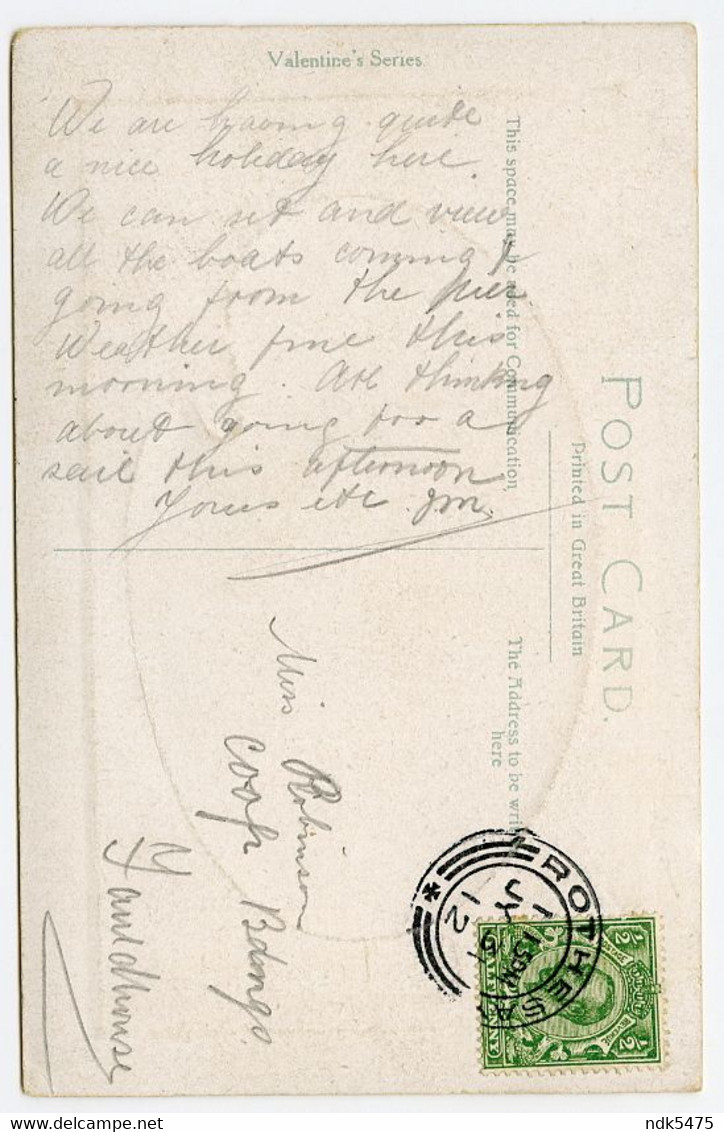 Valentine's Series
We are having quite
a nice holiday here.
We can sit and view
all the boats coming &
going from the pier.
Weather fine this
morning. Are thinking
about going for a
sail this afternoon
Yours etc JM.
This space may be used for Communication
POST CARD.
Printed in Great Britain
The Address to be writ
here
Miss Robinson
Coop Bdngs.
Fauldhouse
ROTHESA
1.15PM
JY 16
12
1/2
1/2
POSTAGE
REVENUE
NY
ndk5475